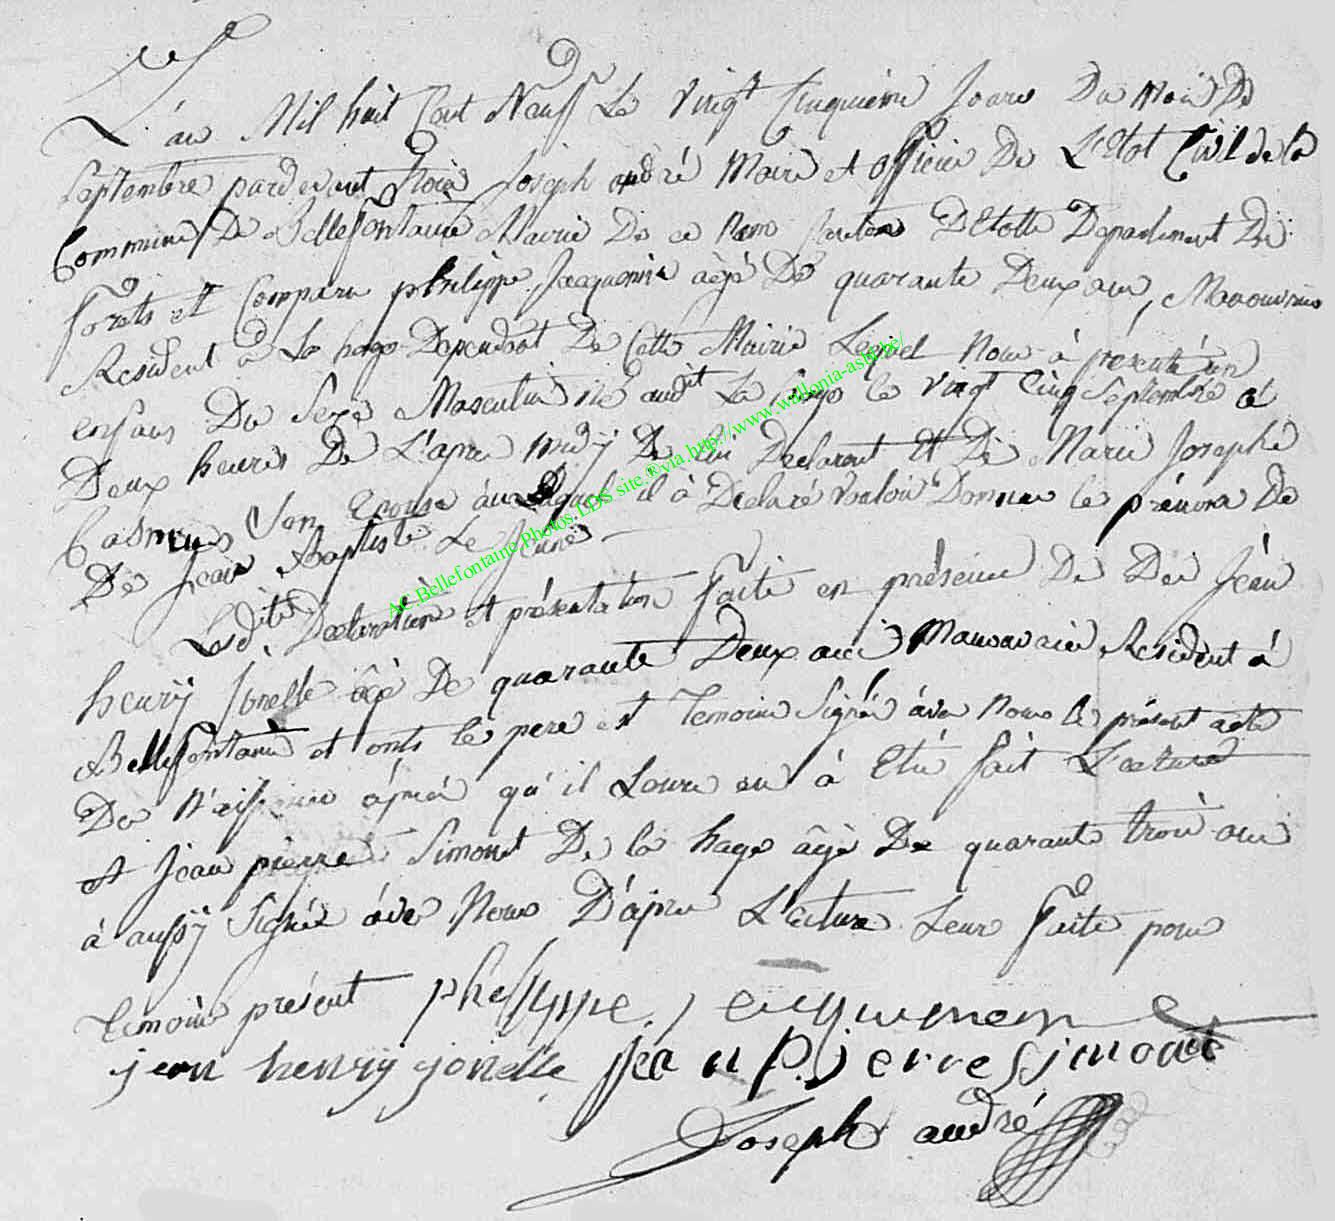 L'an Mil huit Cent Neuff Le vingt Cinquieme Jours Du Mois De
Septembre pardevant Nous Joseph andré Maire et officier De L'Etat Civil de la
Commune De Bellefontaine Mairie De ce Nom Canton D'Etalle Departement Des
forets est Comparu philippe Jacquemin agé De quarante Deux ans, Manouvrier
Resident a La hage Dependant De Cette Mairie Lequel Nous à presenté un
enfans Du Sexe Masculin né audit La hage le vingt Cinq Septembre a
Deux heures De L'apres midy De lui Declarant Et De Marie Josephe
Son Epouse auquel il à Declaré vouloir Donner le prénoms De
De Jean Baptiste Le Jeune
Lesdite Declaration et présentation faite en présence De Des Jean
henry Jonelle agé De quarante Deux ans Manouvrier Resident à
Bellefontaine et onts le pere et Temoins Signée avec Nous le présent acte
De Naissance après qu'il Leure en à Eté fait Lecture
et Jean pierre Simonet De la hage âgé De quarante trois ans
à aussy Signée avec Nous D'apres Lecture Leur faite pour
Temoins présent phelyppe Jacqumem
jean henry jonelle Jean Pierre Simonet
Joseph andré
AC.Bellefontaine.Photos.LDS site.®via.http://www.wallonia-asbl.be/